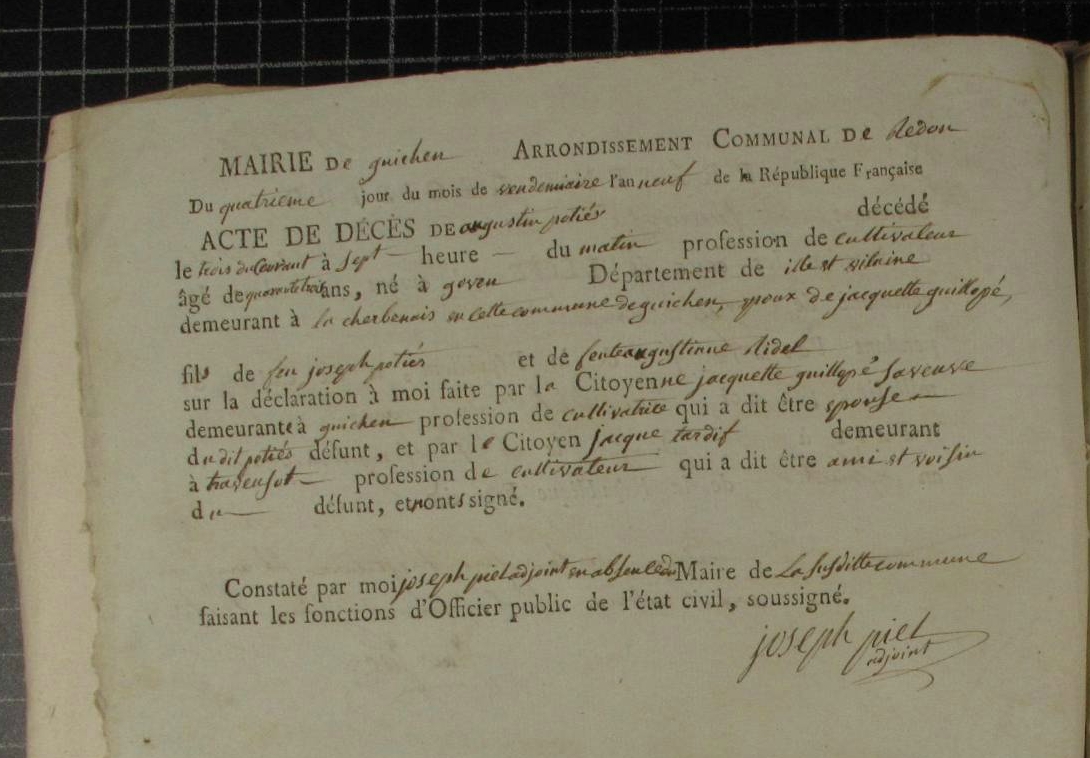 MAIRIE DE guichen ARRONDISSEMENT COMMUNAL DE Redon
Du quatrieme jour du mois de vendemiaire l'an neuf de la République Française
ACTE DE DÉCÈS DE augustin potiés décédé
le trois du Courant à Sept heure du matin profession de cultivateur
âgé de quarante trois ans, né à goven Département de ille et vilaine
demeurant à la cherbenais en cette commune de guichen, epoux de jacquette guillopé,
fils de feu joseph potiés et de feue augustinne Ridel
sur la déclaration à moi faite par la Citoyenne jacquette guillopé Saveuve
demeurante à guichen profession de cultivatrice qui a dit être epouse
du dit potiés défunt, et par le Citoyen jacque tardif demeurant
à traveusot profession de cultivateur qui a dit être ami et voisin
du défunt, et nonts signé.
Constaté par moi joseph piel adjoint en absence du Maire de La susditte commune
faisant les fonctions d'Officier public de l'état civil, soussigné.
joseph piel
adjoint